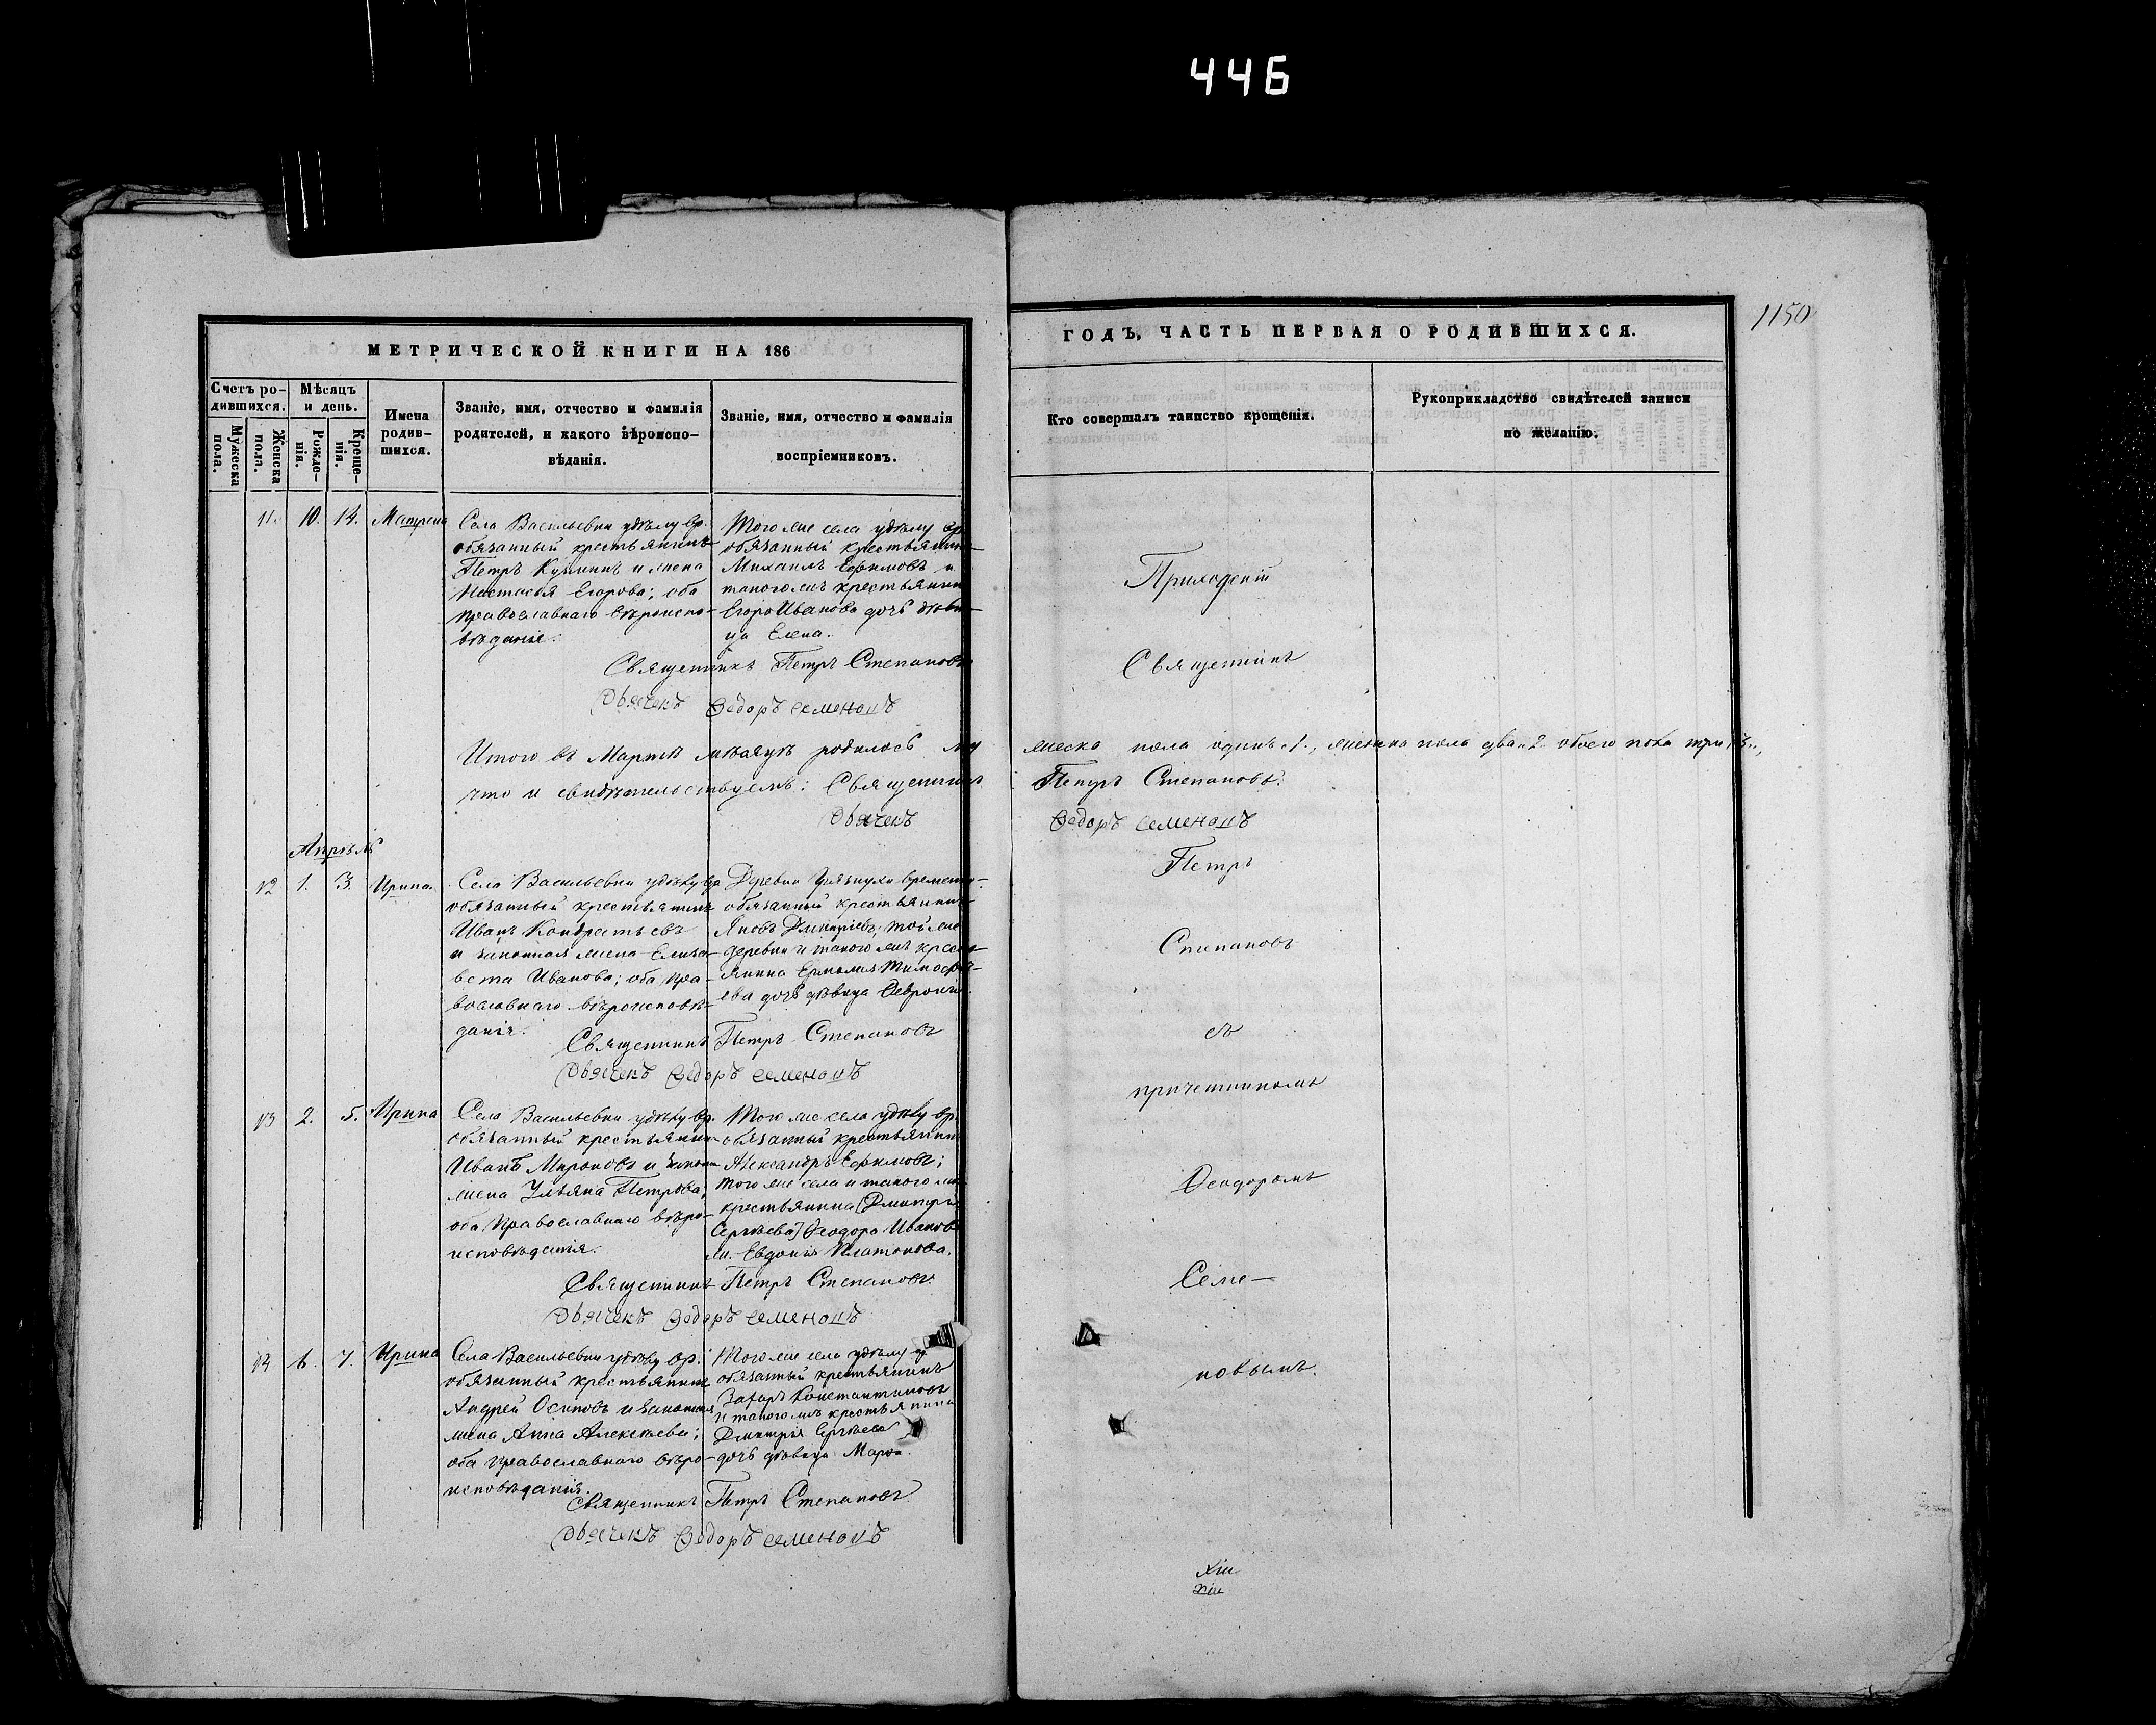 446
1150
МЕТРИЧЕСКОЙ КНИГИ НА 186
Счетъ ро-
дившихся.
Мѣсяцъ
и день.
Мужеска
пола.
Женска
пола.
Рожде-
нія.
Креще-
нія.
Имена
родив-
шихся.
Званіе, имя, отчество и фамилія
родителей, и какого вѣроиспо-
вѣданія.
Званіе, имя, отчество и фамилія
воспріемниковъ.
11. 10. 14. Матрена
Села Васильевки удѣлу вр.
обязанный крестьянинъ
Петръ Кузминъ и жена
Настасья Егорова; оба
православнаго вѣроиспо-
вѣданія.
Того же села удѣлу вр.
обязанный крестьянинъ
Михаилъ Ефимовъ и
такого жъ крестьянина
Егора Иванова дочь дѣви-
ца Елена.
Священникъ Петръ Степановъ
Дьячекъ Ѳедоръ Семеновъ
Итого въ Мартѣ мѣсяцѣ родилось му
что и свидѣтельствуемъ: Священникъ
Дьячекъ
Апрѣль
12 1. 3. Ирина.
Села Васильевки удѣлу вр
обязанный крестьянинъ
Иванъ Кондратьевъ
и законная жена Елиса-
вета Иванова; оба пра-
вославнаго вѣроисповѣ-
данія.
Деревни временно-
обязанный крестьянинъ
Яковъ Дмитріевъ; той же
деревни и такого жъ кресть-
янина Ермолая Тимофѣ-
ева дочь дѣвица Февронія.
Священникъ Петръ Степановъ
Дьячекъ Ѳедоръ Семеновъ
13 2. 5. Ирина
Села Васильевки удѣлу вр.
обязанный крестьянинъ
Иванъ Мироновъ и законн
жена Ульяна Петрова,
оба православнаго вѣро-
исповѣданія.
Того же села удѣлу вр.
обязанный крестьянинъ
Александръ Ефимовъ;
того же села и такого жъ
крестьянина [Дмитрія
Сергѣева] Ѳеодора Иванов
ж. Евдокія Платонова.
Священникъ Петръ Степановъ.
Дьячекъ Ѳедоръ Семеновъ
14 6. 7. Ирина
Села Васильевки удѣлу вр.
обязанный крестьянинъ
Андрей Осиповъ и законная
жена Анна Алексѣева;
оба православнаго вѣро-
исповѣданія.
Того же села удѣлу вр
обязанный крестьянинъ
Захаръ Константиновъ
и такого жъ крестьянина
Дмитрія Сергѣева
дочь дѣвица Марѳа.
Священникъ Петръ Степановъ
Дьячекъ Ѳедоръ Семеновъ
ГОДЪ, ЧАСТЬ ПЕРВАЯ О РОДИВШИХСЯ.
Кто совершалъ таинство крещенія.
Рукоприкладство свидѣтелей записи
по желанію.
Приходскій
Священникъ
жеска пола одинъ 1., женска пола два 2. обоего пола три 3.,
Петръ Степановъ.
Ѳедоръ Семеновъ
Петръ
Степановъ
съ
причетникомъ
Ѳеодоромъ
Семе-
новымъ.